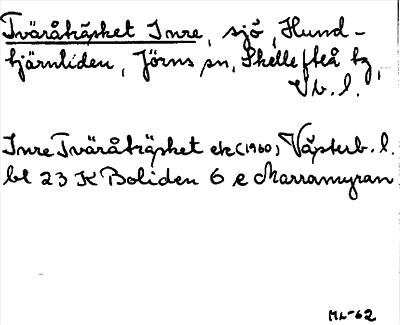 Tväråträsket Inre, sjö, Hund-
tjärnliden, Jörns sn, Skellefteå tg,
Vb. l.
Inre Tväråträsket ek (1960) Västerb. l.
bl 23 K Boliden 6 e Marramyran
ML-62